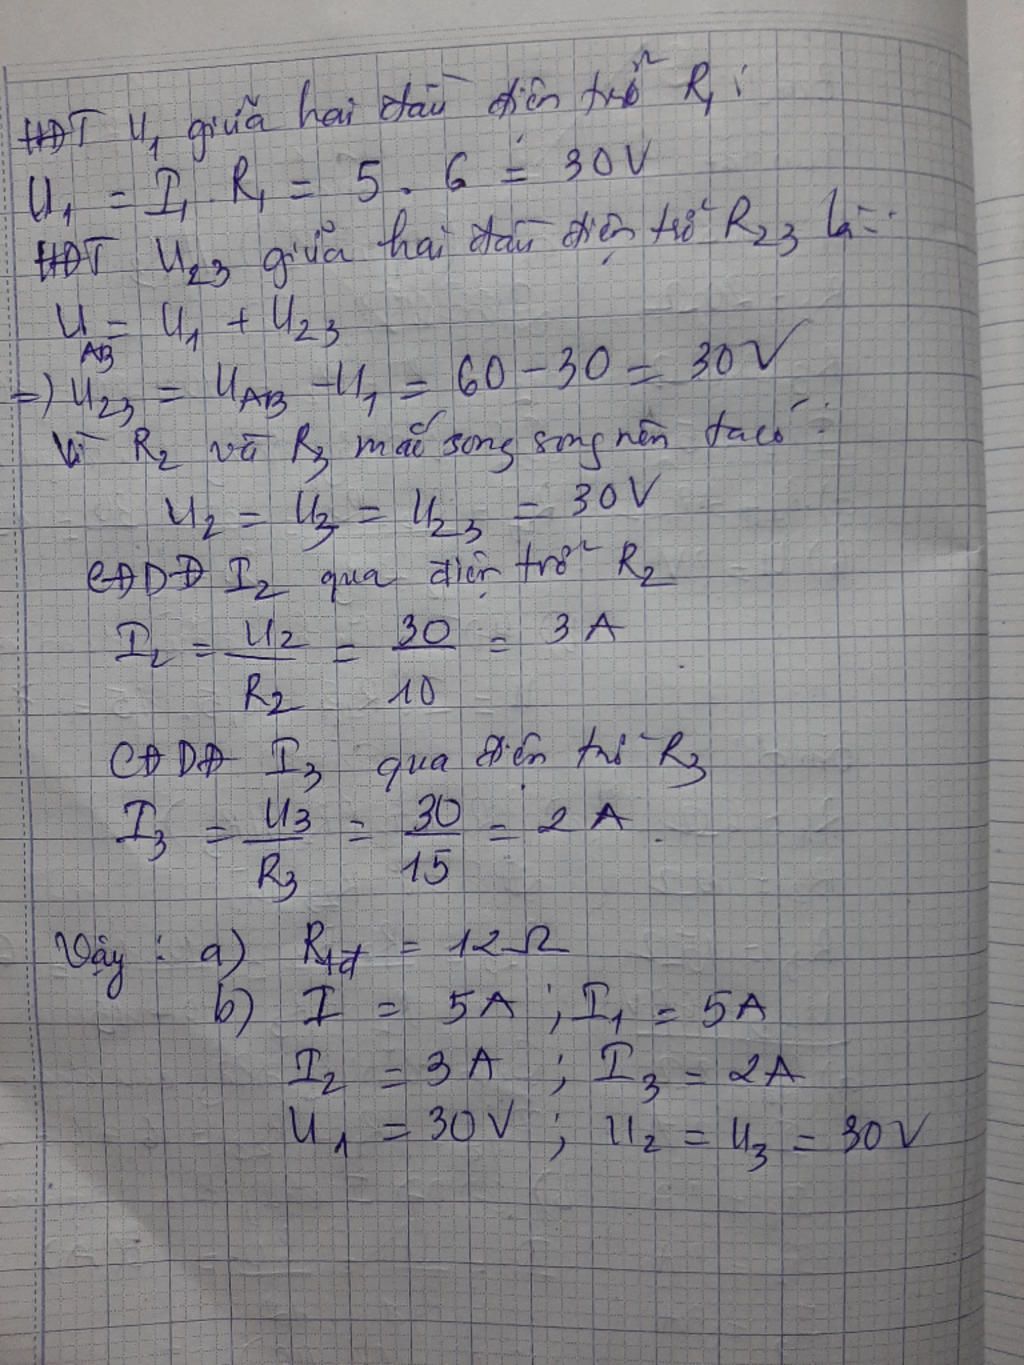 HĐT U₁ giữa hai đầu điện trở R₁ :
U₁ = I₁ . R₁ = 5 . 6 = 30V
HĐT U₂₃ giữa hai đầu điện trở R₂₃ là :
U_AB = U₁ + U₂₃
=) U₂₃ = U_AB - U₁ = 60 - 30 = 30V
Vì R₂ và R₃ mắc song song nên ta có :
U₂ = U₃ = U₂₃ = 30V
CĐDĐ I₂ qua điện trở R₂
I₂ = U₂/R₂ = 30/10 = 3 A
CĐDĐ I₃ qua điện trở R₃
I₃ = U₃/R₃ = 30/15 = 2 A .
Vậy : a) R_tđ = 12Ω
b) I = 5A ; I₁ = 5A
I₂ = 3A ; I₃ = 2A
U₁ = 30V ; U₂ = U₃ = 30V